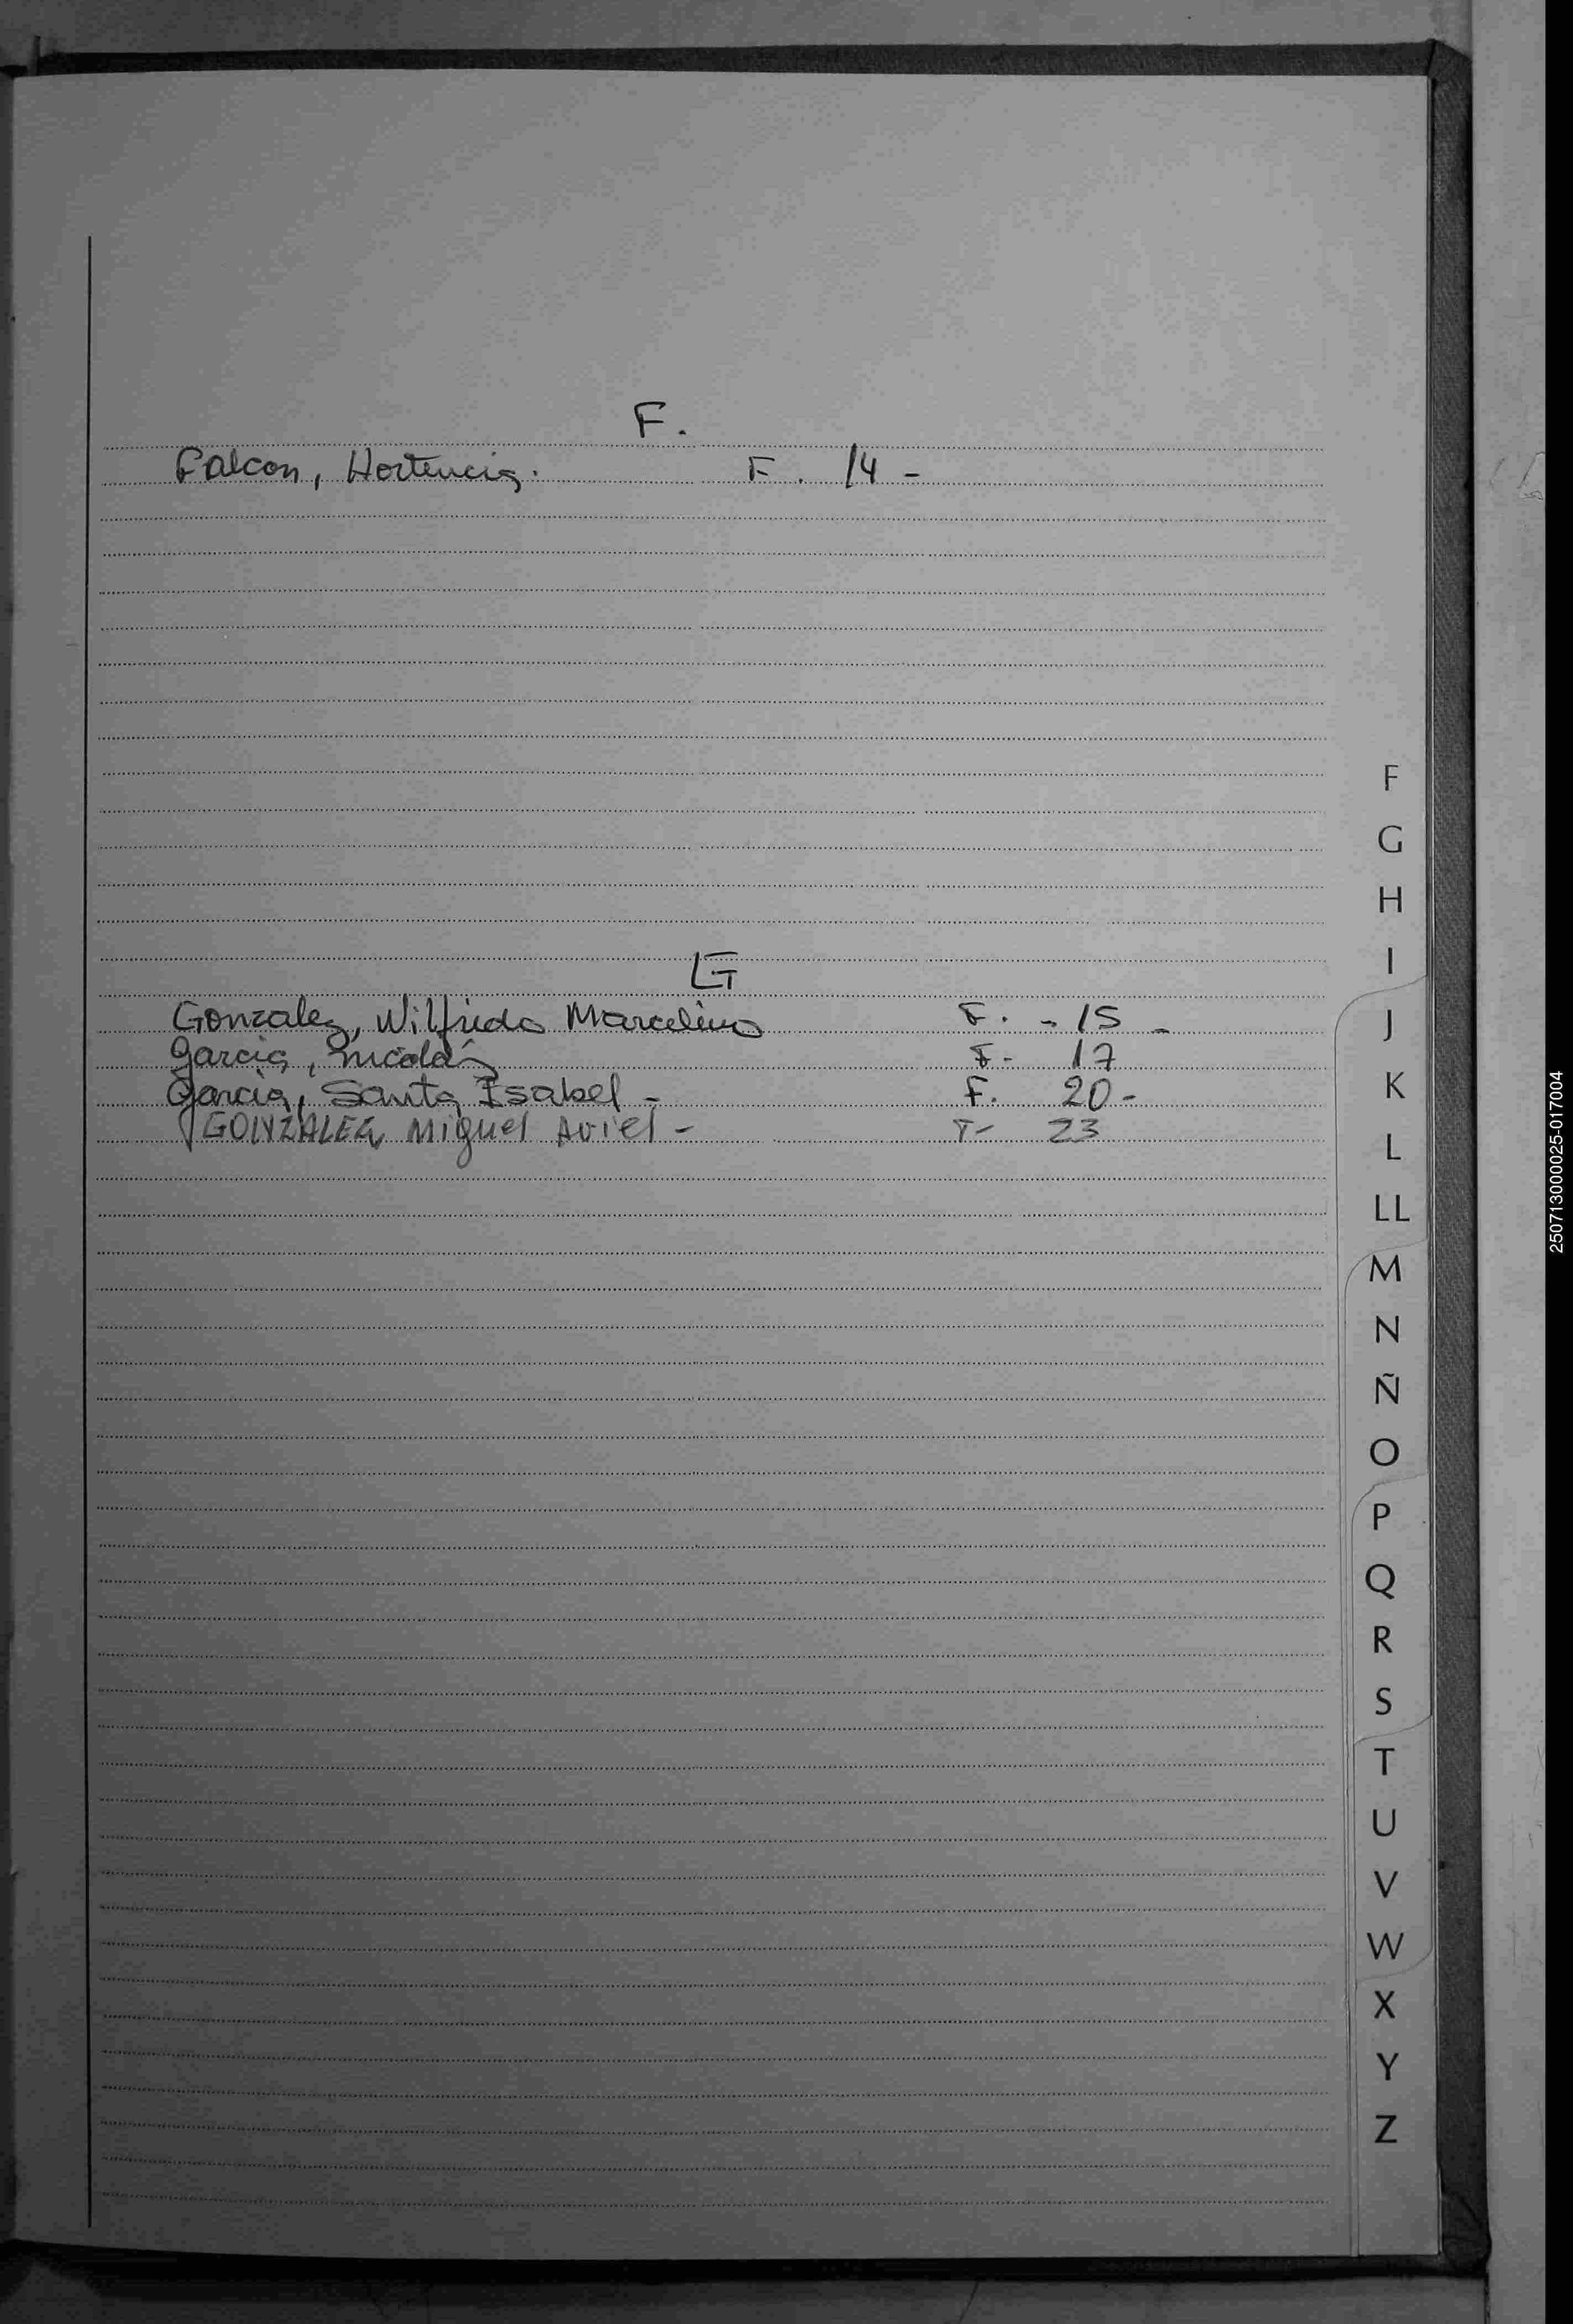 F.
Falcon, Hortencia. F. 14 -
G
Gonzalez, Wilfredo Marcelino F. - 15 -
Garcia, Nicolás F- 17
Garcia, Santa Isabel - F. 20 -
GONZALEZ Miguel Ariel - F- 23
F
G
H
I
J
K
L
LL
M
N
Ñ
O
P
Q
R
S
T
U
V
W
X
Y
Z
250713000025-017004